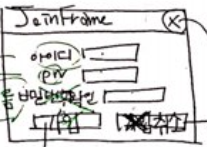 JoinFrame X
아이디
PW
비밀번호확인
가입 취소